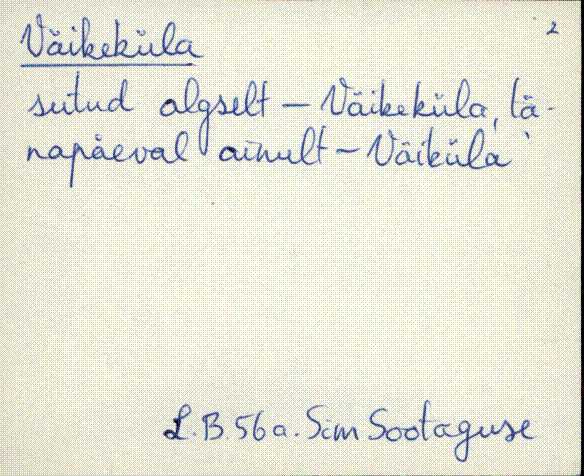 2
Väikeküla
sutud algselt – Väikeküla, tä-
napäeval ainult – Väiküla
L.B. 56 a. Sim Sootaguse